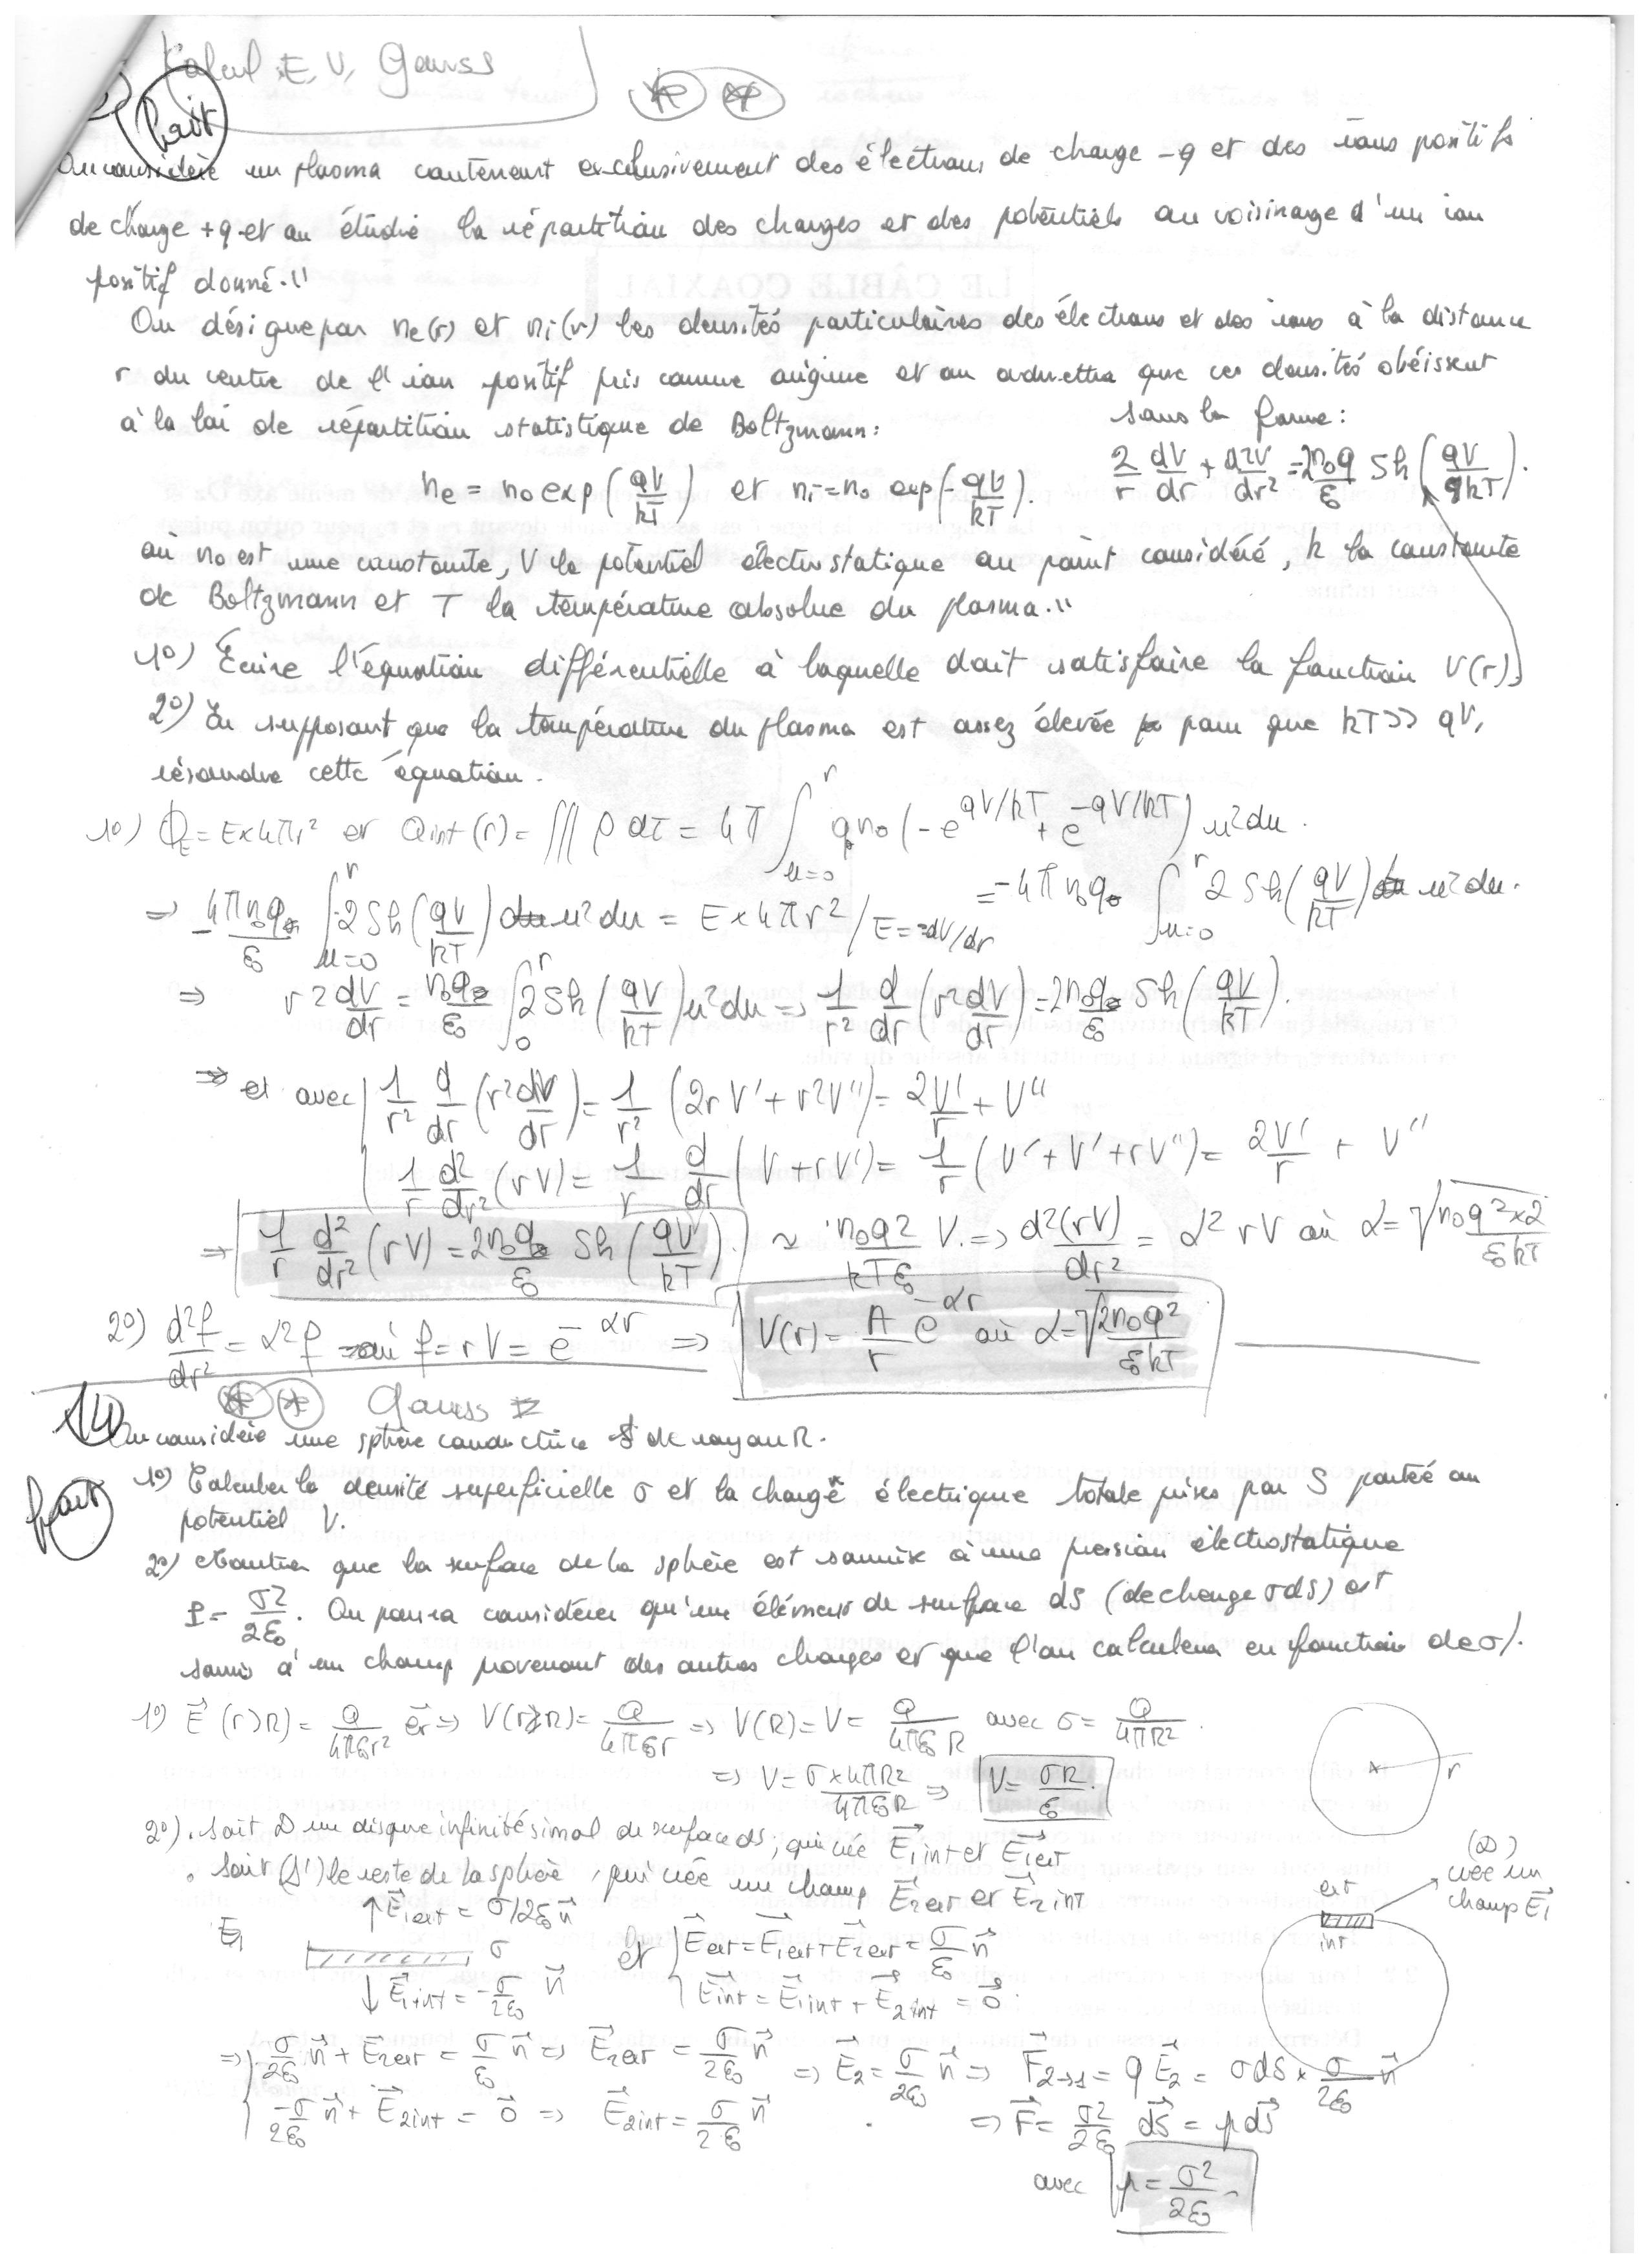 Calcul E, V, Gauss
Fait
On considère un plasma contenant exclusivement des électrons de charge -q et des ions positifs
de charge +q et on étudie la répartition des charges et des potentiels au voisinage d'un ion
positif donné."
On désigne par ne(r) et ni(r) les densités particulaires des électrons et des ions à la distance
r du centre de l'ion positif pris comme origine et on admettra que ces densités obéissent
à la loi de répartition statistique de Boltzmann:
sous la forme:
ne = n0 exp(qV/kT) et ni = n0 exp(-qV/kT). 2/r dV/dr + d2V/dr² = 2n0q/ε0 Sh(qV/kT).
où n0 est une constante, V le potentiel électrostatique au point considéré, k la constante
de Boltzmann et T la température absolue du plasma."
1°) Écrire l'équation différentielle à laquelle doit satisfaire la fonction V(r).
2°) En supposant que la température du plasma est assez élevée pour que kT >> qV,
résoudre cette équation.
1°) ΦE = E×4πr² et Qint(r) = ∭ρdτ = 4π ∫u=0^r qn0(-e^qV/kT + e^-qV/kT) u²du.
= -4πn0q ∫u=0^r 2Sh(qV/kT) u²du.
=> -4πn0q/ε0 ∫u=0^r 2Sh(qV/kT) u²du = E×4πr² / E = -dV/dr
=> r²dV/dr = n0q/ε0 ∫0^r 2Sh(qV/kT)u²du => 1/r² d/dr(r²dV/dr) = 2n0q/ε0 Sh(qV/kT).
=> et avec 1/r² d/dr(r²dV/dr) = 1/r² (2rV' + r²V'') = 2V'/r + V''
1/r d²/dr²(rV) = 1/r d/dr(V+rV') = 1/r(V'+V'+rV'') = 2V'/r + V''
=> 1/r d²/dr²(rV) = 2n0q/ε0 Sh(qV/kT). ≃ n0q²/kTε0 V. => d²(rV)/dr² = α² rV où α = √n0q²×2/ε0kT
2°) d²f/dr² = α²f où f = rV = e^-αr => V(r) = A/r e^-αr où α = √2n0q²/ε0kT
14) Gauss
On considère une sphère conductrice S de rayon R.
Fait
1°) Calculer la densité superficielle σ et la charge électrique totale prises par S portée au
potentiel V.
2°) Montrer que la surface de la sphère est soumise à une pression électrostatique
P = σ²/2ε0. On pourra considérer qu'un élément de surface dS (de charge σdS) est
soumis à un champ provenant des autres charges et que l'on calculera en fonction de σ/.
1°) E(r>R) = Q/4πε0r² er => V(r≥R) = Q/4πε0r => V(R) = V = Q/4πε0R avec σ = Q/4πR².
=> V = σ×4πR²/4πε0R => V = σR/ε0.
r
2°). Soit D un disque infinitésimal de surface dS, qui crée E1int et E1ext
. Soit (S') le reste de la sphère, qui crée un champ E2ext et E2int
(D)
crée un
champ E1
ext
int
↑E1ext = σ/2ε0 n
σ
↓E1int = -σ/2ε0 n
et Eext = E1ext + E2ext = σ/ε0 n
Eint = E1int + E2int = 0.
=> σ/2ε0 n + E2ext = σ/ε0 n => E2ext = σ/2ε0 n => E2 = σ/2ε0 n => F2→1 = qE2 = σdS × σ/2ε0 n
-σ/2ε0 n + E2int = 0 => E2int = σ/2ε0 n => F = σ²/2ε0 dS = p dS
avec p = σ²/2ε0